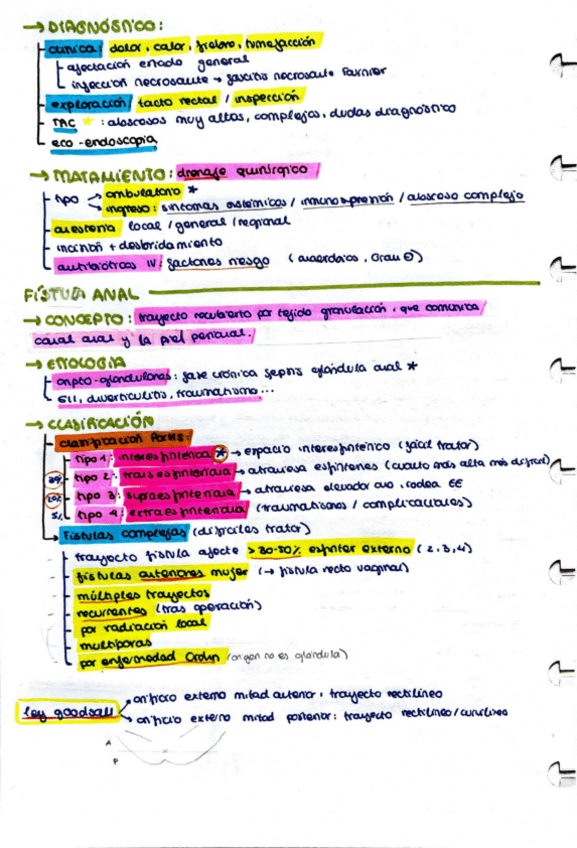 → DIAGNÓSTICO:
clínica: dolor, calor, fiebre, tumefacción
afectación estado general
infección necrosante → fascitis necrosante Fournier
exploración / tacto rectal / inspección
TAC * : abscesos muy altos, complejos, dudas diagnóstico
eco-endoscopia
→ TRATAMIENTO: drenaje quirúrgico
tipo → ambulatorio *
ingreso: síntomas sistémicos / inmunosupresión / absceso complejo
anestesia local / general / regional
incisión + desbridamiento
antibióticos IV: factores riesgo (anaerobios, Gram ⊖)
FÍSTULA ANAL
→ CONCEPTO: trayecto recubierto por tejido granulación, que comunica
canal anal y la piel perianal.
→ ETIOLOGIA
cripto-glandulares: fase crónica sepsis glándula anal *
EII, diverticulitis, traumatismo...
→ CLASIFICACIÓN
clasificación Parks:
tipo 1: interesfintérica * → espacio interesfintérico (fácil tratar)
30% tipo 2: transesfinteriana → atraviesa esfínteres (cuanto más alta más difícil)
20% tipo 3: supraesfinteriana → atraviesa elevador ano, rodea EE
5% tipo 4: extraesfinteriana (traumatismos / complicaciones)
Fístulas complejas (difíciles tratar)
trayecto fístula afecte > 30-50% esfínter externo (2, 3, 4)
fístulas anteriores mujer (→ fístula recto vaginal)
múltiples trayectos
recurrentes (tras operación)
por radiación local
multíparas
por enfermedad Crohn (origen no es glándula)
ley goodsall
orificio externo mitad anterior: trayecto rectilíneo
orificio externo mitad posterior: trayecto rectilíneo / curvilíneo
A
P